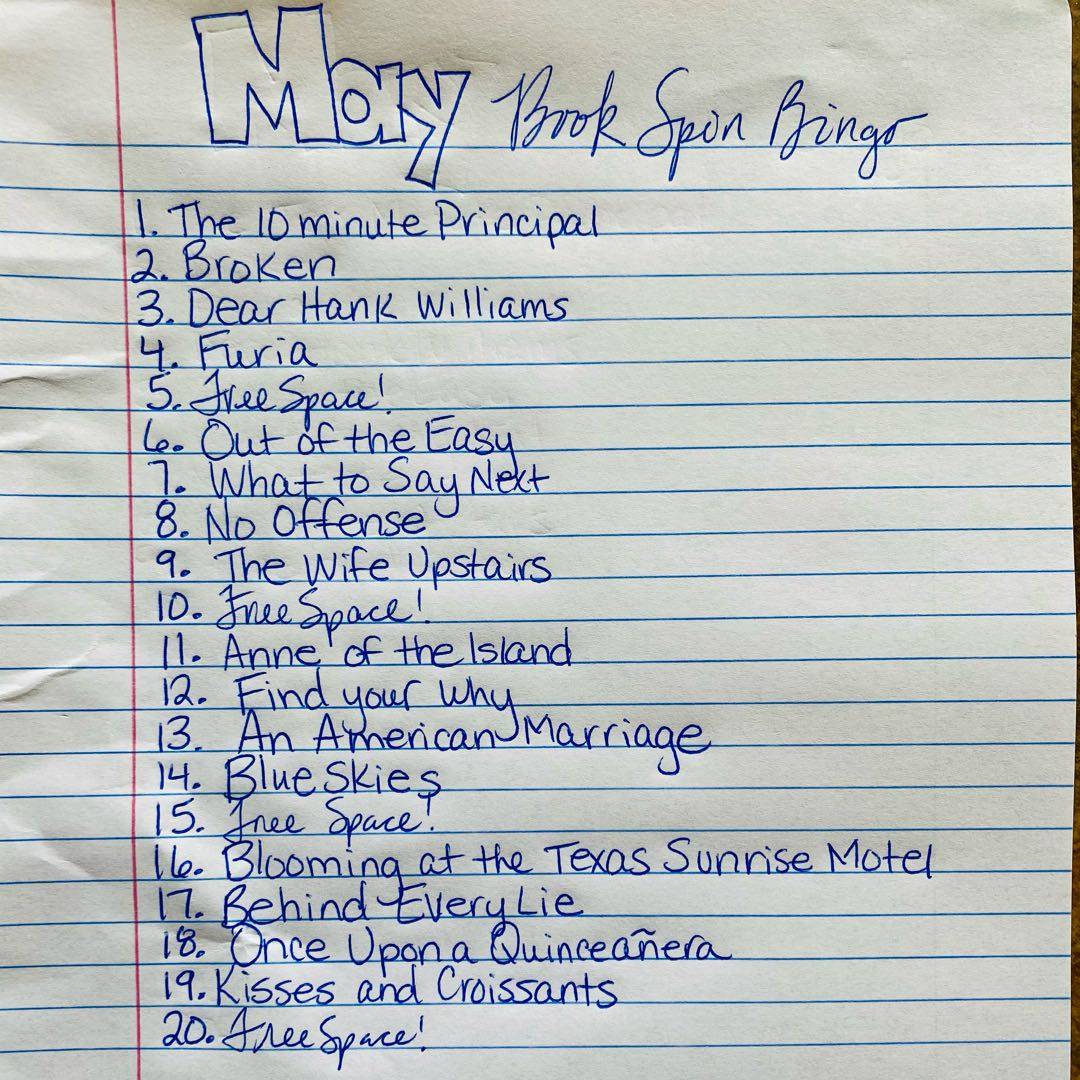 May Book Spin Bingo
1. The 10 minute Principal
2. Broken
3. Dear Hank Williams
4. Furia
5. Free Space!
6. Out of the Easy
7. What to Say Next
8. No Offense
9. The Wife Upstairs
10. Free Space!
11. Anne of the Island
12. Find your Why
13. An American Marriage
14. Blue Skies
15. Free Space!
16. Blooming at the Texas Sunrise Motel
17. Behind Every Lie
18. Once Upon a Quinceañera
19. Kisses and Croissants
20. Free Space!